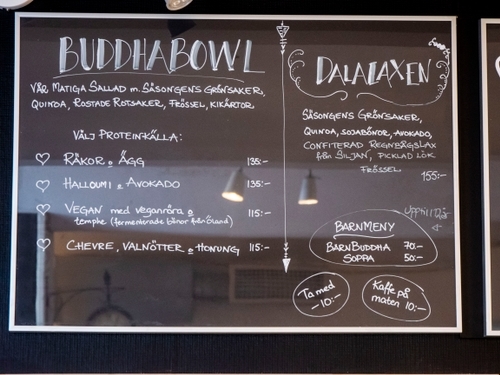 BUDDHABOWL
VÅR MATIGA SALLAD m. SÄSONGENS GRÖNSAKER,
QUINOA, ROSTADE ROTSAKER, FRÖSSEL, KIKÄRTOR
VÄLJ PROTEINKÄLLA:
RÄKOR & ÄGG 135:-
HALLOUMI & AVOKADO 135:-
VEGAN med veganröra &
temphe (fermenterade bönor från Öland) 115:-
CHEVRE, VALNÖTTER & HONUNG 115:-
DALALAXEN
SÄSONGENS GRÖNSAKER,
QUINOA, SOJABÖNOR, AVOKADO,
CONFITERAD REGNBÅGSLAX
från SILJAN, PICKLAD LÖK
FRÖSSEL
155:-
Upp till 12år
BARNMENY
BARNBUDDHA 70:-
SOPPA 50:-
Ta med
-10:-
Kaffe på
maten 10:-